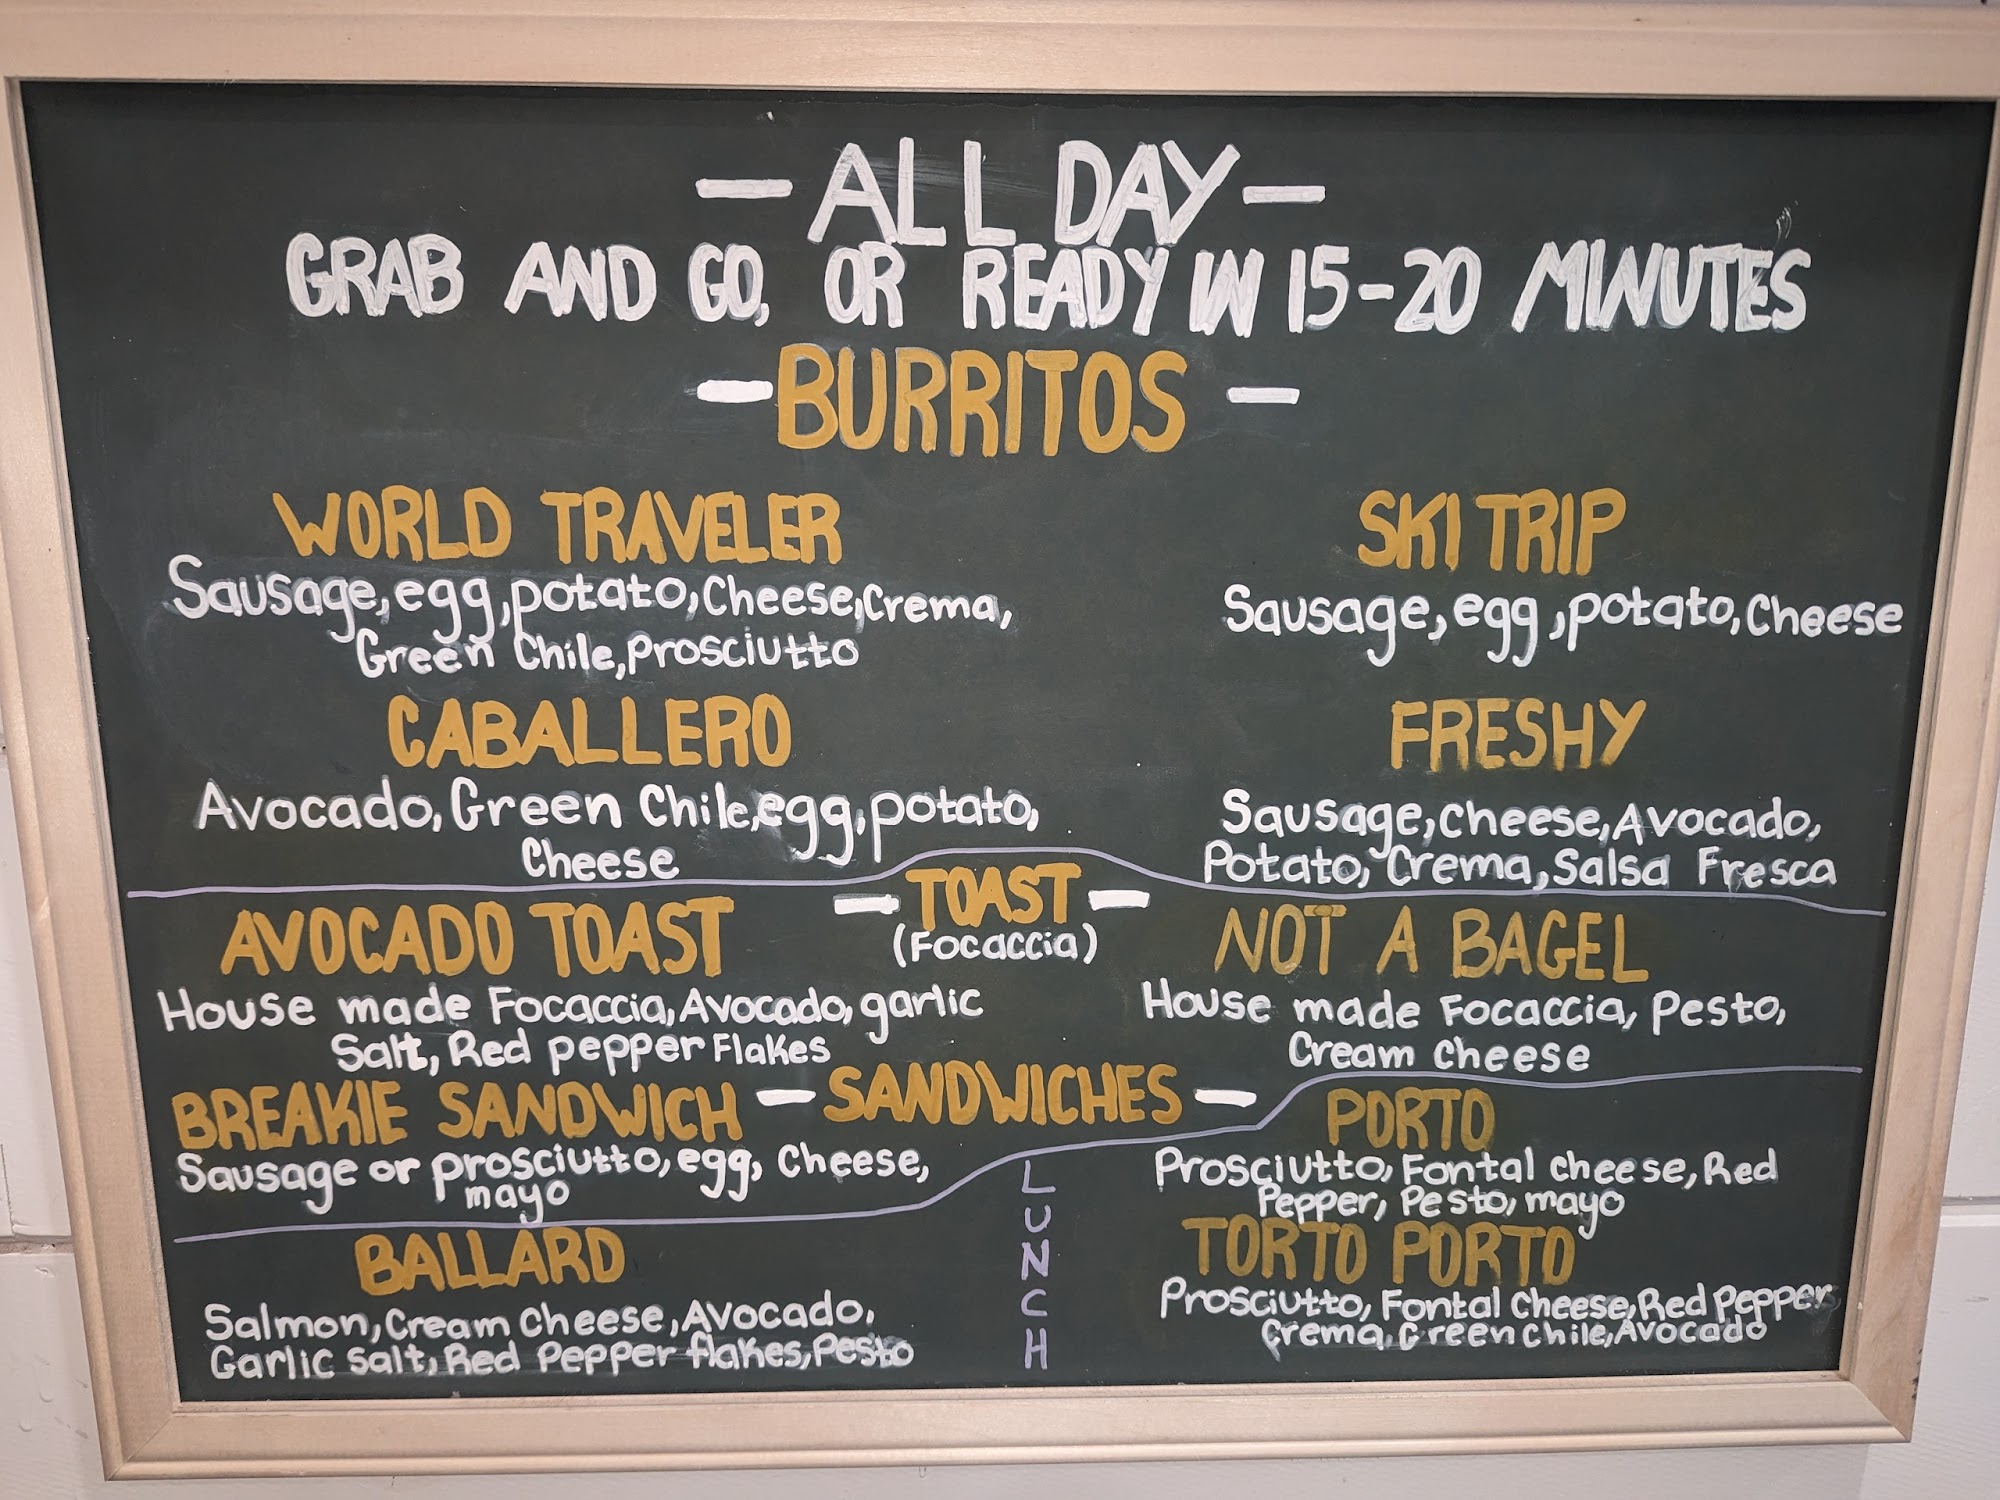 — ALL DAY —
GRAB AND GO, OR READY IN 15-20 MINUTES
— BURRITOS —
WORLD TRAVELER
Sausage, egg, potato, Cheese, Crema,
Green Chile, Prosciutto
SKI TRIP
Sausage, egg, potato, Cheese
CABALLERO
Avocado, Green Chile, egg, potato,
Cheese
FRESHY
Sausage, Cheese, Avocado,
Potato, Crema, Salsa Fresca
— TOAST —
(Focaccia)
AVOCADO TOAST
House made Focaccia, Avocado, garlic
Salt, Red pepper Flakes
NOT A BAGEL
House made Focaccia, Pesto,
Cream Cheese
— SANDWICHES —
BREAKIE SANDWICH
Sausage or prosciutto, egg, Cheese,
mayo
LUNCH
BALLARD
Salmon, Cream Cheese, Avocado,
Garlic salt, Red Pepper flakes, Pesto
PORTO
Prosciutto, Fontal cheese, Red
Pepper, Pesto, mayo
TORTO PORTO
Prosciutto, Fontal Cheese, Red Pepper
Crema, Green Chile, Avocado